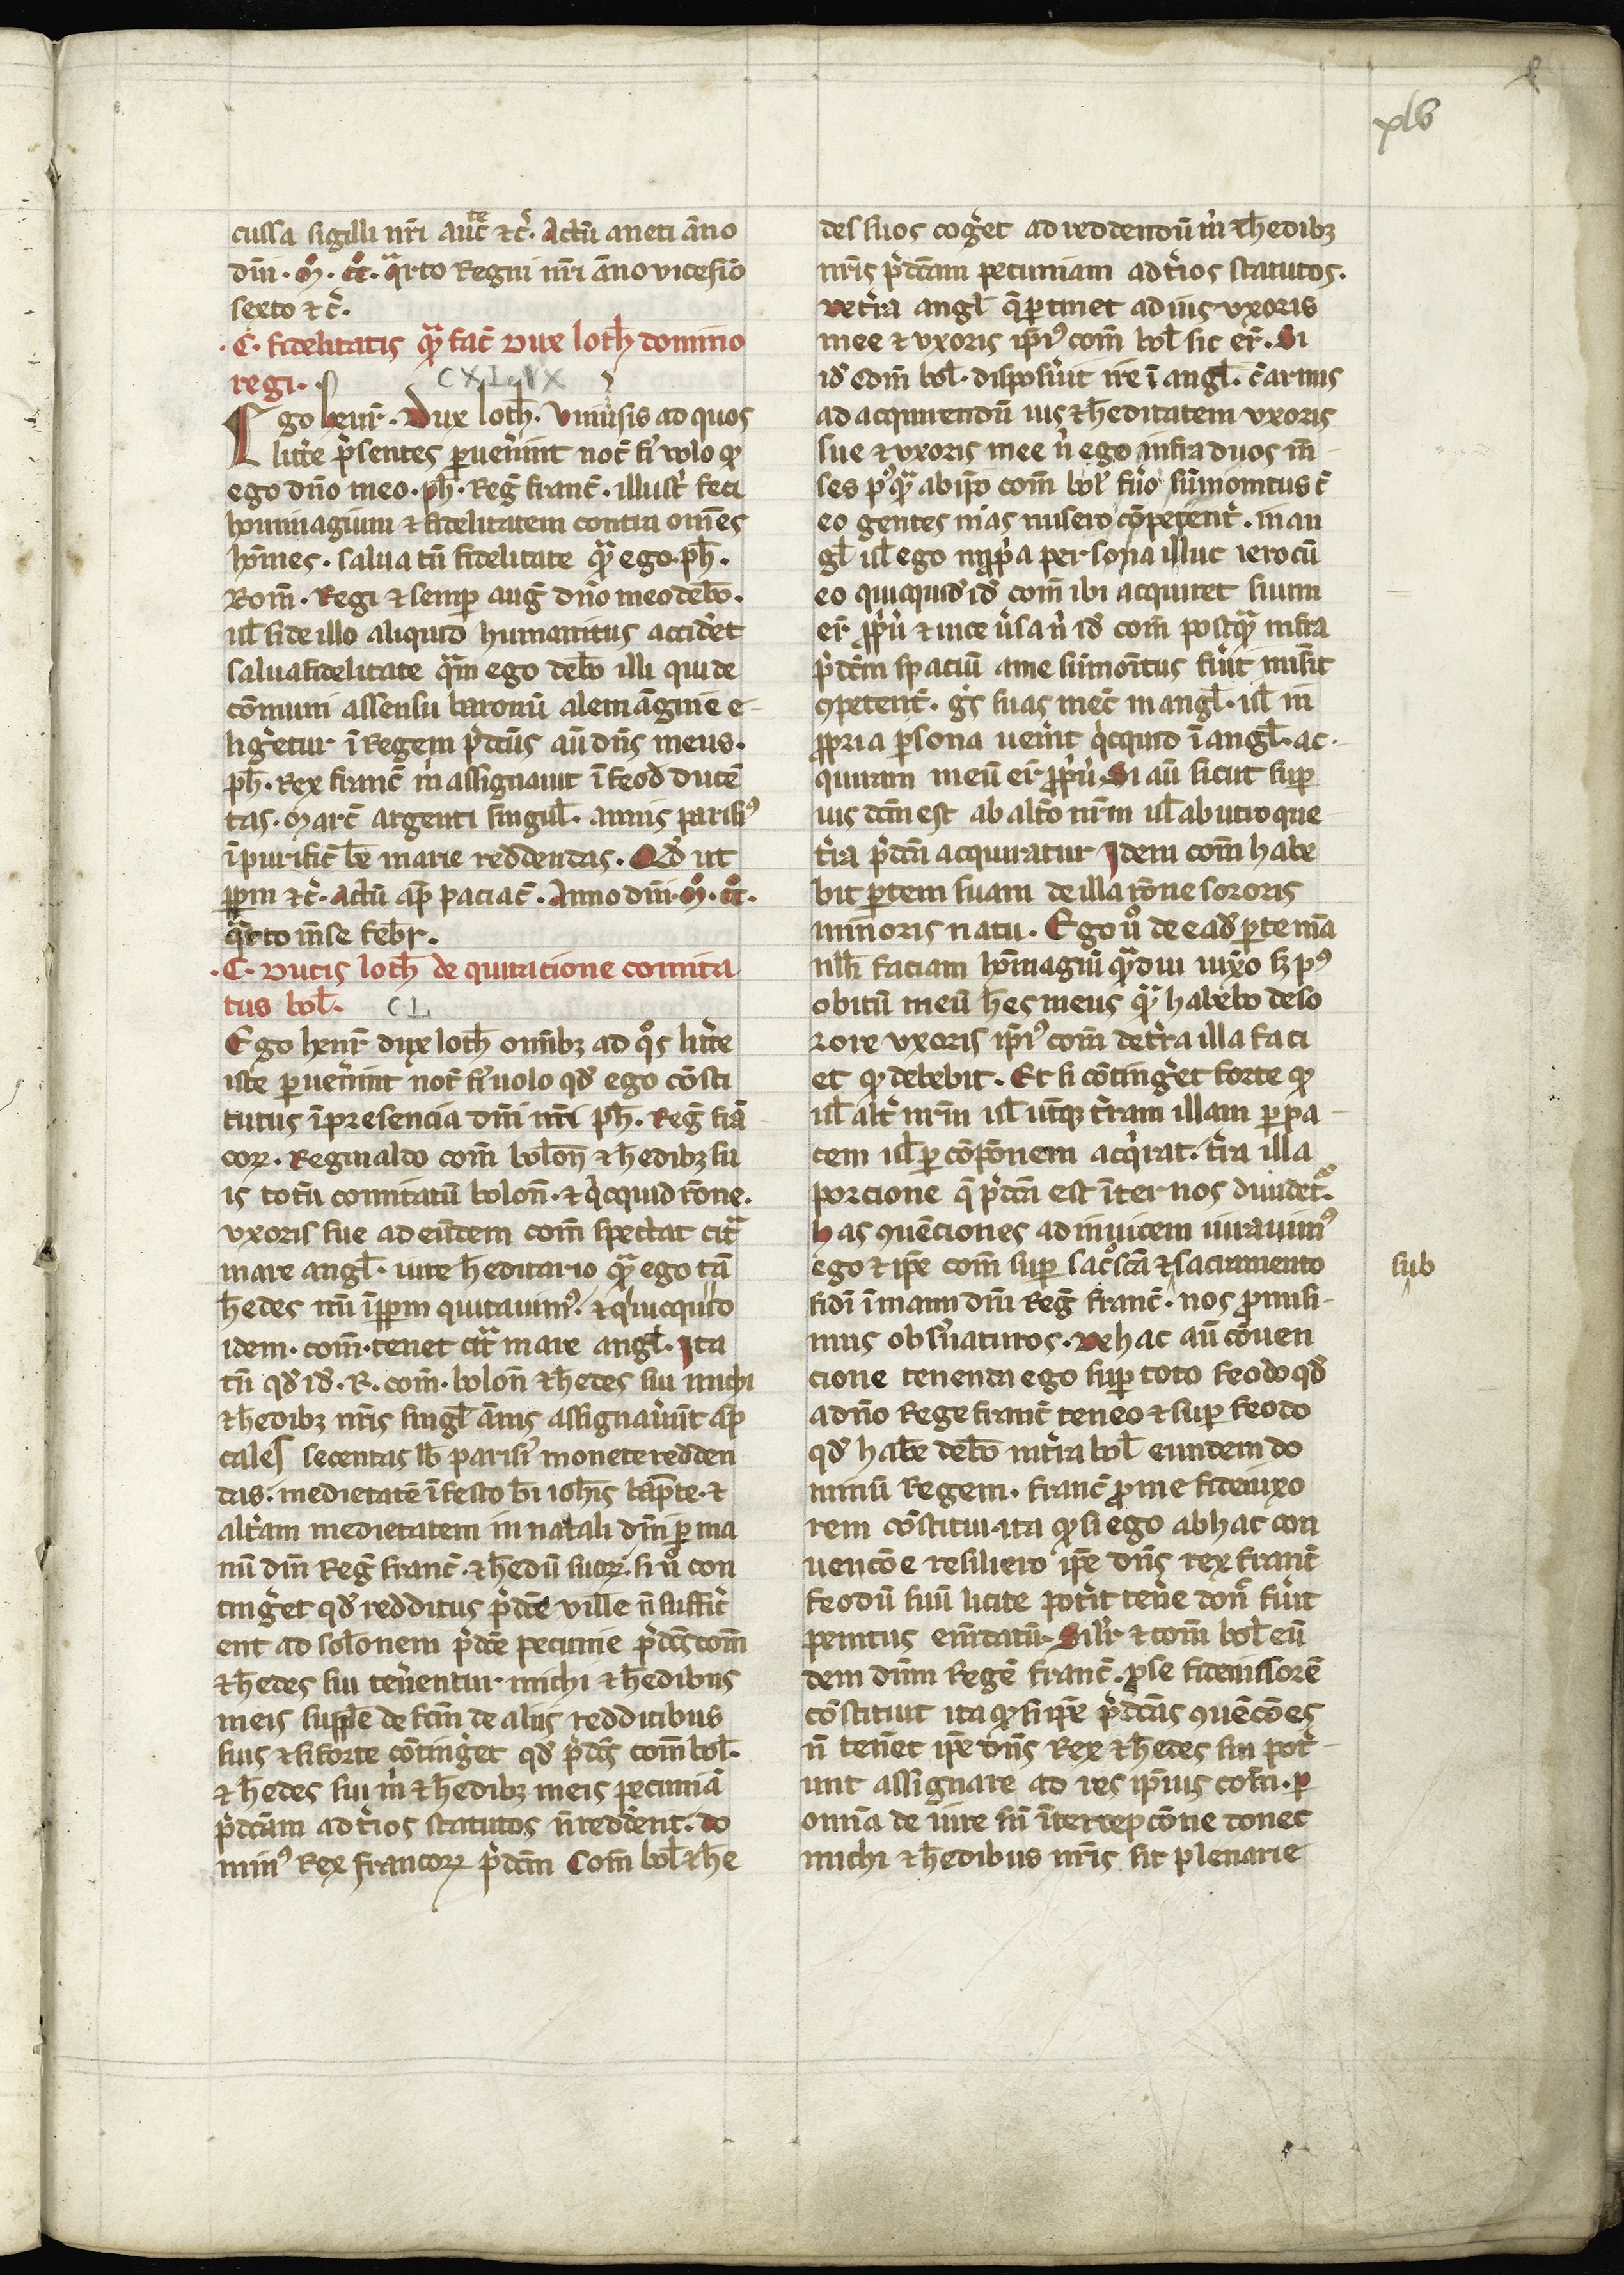 xlv
cussa sigilli nr̄i auc̄te ⁊c̄. Actū aneti āno
dn̄i. M̊. c̊c̊. qᵃrto Regni nr̄i āno vicesiō
sexto ⁊ c̄.
.C. fidelitatis qᵃ̄ fac̄ Dux loth̄ domino
regi.
CXLIX
Ego henr̄. Dux loth̄. Vniu̓sis ad quos
litt̓e p̓sentes ꝑuen̓int not̄ fi̓ volo ꝙ
ego dn̄o meo. ph̄. Reḡ franc̄. illust̓ feci
hominagium ⁊ fidelitatem contra om̄es
hoīnes. salua tn̄ fidelitate qᵃ̄ ego. ph̄.
Rom̄. Regi ⁊ semꝑ auḡ dn̄o meo deb̄o.
ul̄ si de illo aliquid humanitus accid̓et
salua fidelitate qᵃ̄m ego deb̄o illi qui de
cōmuni assensu baronū alemāgnie e-
lig̓etur ī Regem p̓dc̄us au̅ dn̄s meus.
ph̄. Rex franc̄ m̓ assignauit ī feod̄ ducē
tas. Marc̄ argenti singul̄. annis parisiꝰ
ī purific̄ be̅ marie reddendas. Qd̓ ut
ꝑpm̄ ⁊c̄. Actū ap̄ paciac̄. Anno dn̄i. M̊. c̊c̊.
qᵃrto m̄se febr̄.
.C. Ducis loth̄ de quitacione comita
tus bol̄.
CL
Ego henr̄ dux loth̄ om̄ibꝫ ad qͦs litt̓e
iste ꝑuen̓int not̄ fi̓ uolo qd̓ ego cōsti
tutus ī presencia dn̄i nr̄i ph̄. Reḡ frā
coꝝ. Reginaldo com̄ bolon̄ ⁊ h̄edibꝫ su
is totū comitatū bolon̄. ⁊ q̓cquid rōne.
vxoris sue ad eūdem com̄ spectat citᵃ
mare angl̄. iure h̄editario qᵃ̄ ego tā
h̄edes mī īꝑpm̄ quitauimꝰ. ⁊ quicquid
idem. com̄. tenet citᵃ mare angl̄. Ita
tn̄ qd̓ id̓. R. com̄. bolon̄ ⁊ h̄edes sui michi
⁊ h̄edibꝫ nr̄is singl̄ ānis assignau̓int ap̄
cales secentas lb̄ parisi̓ monete redden
das. medietatē ī festo bī ioh̄is bapt̄e. ⁊
alt̓am medietatem in natali dn̄i ꝑ ma
nū dn̄i Reḡ franc̄. ⁊ h̄edū suoꝝ. si u̓o con
ting̓et qd̓ redditus p̓dc̄e ville n̄ suffic̓
ent ad solōnem p̓dc̄e pecunie p̓dc̄s com̄
⁊ h̄edes sui ten̓entur michi ⁊ h̄edibus
meis supple̅ defc̄m de aliis redditibus
suis ⁊ si forte cōting̓et qd̓ p̓dc̄s com̄ bol̄.
⁊ h̄edes sui m̓ ⁊ h̄edibꝫ meis pecuniā
p̓dc̄am ad t̓ios statutos n̄ redd̓ent. do
minꝰ Rex francoꝝ p̓dc̄m Com̄ bol̄ ⁊ he
des suos cog̓et ad reddendū m̓ ⁊ h̄edibꝫ
nr̄is p̓dc̄am pecuniam ad t̓ios statutos.
De t̓ra angl̄ q̄ ꝑtinet ad ius vxoris
mee ⁊ vxoris ip̄iꝰ com̄ bol̄ sic er̄. Si
id̓ Com̄ bol̄. disposu̓it ire ī angl̄. c̄ armis
ad acquirendū ius ⁊ h̄editatem vxoris
sue ⁊ vxoris mee n̓ ego infra duos m̄
ses pꝰqᵃ̄ ab ip̄o com̄ bol̄ fu̓o sūmonitus c̄
eo gentes m̓as misero cōpetent̓. in an
gl̄ ul̄ ego in ꝓp̓a persona illuc iero cū
eo quicquid id̓ com̄ ibi acquiret suum
er̄ ꝓp̓ū ⁊ uice u̓sa n̓ id̓ com̄ postqᵃ̄ infra
p̓dc̄m spaciū a me sūmoītus fu̓it mis̓it
ꝯpetent̓. g̓s suas mec̄ in angl̄. ul̄ in
ꝓpria ꝑsona uen̓it q̓cquid ī angl̄. ac-
quiram meū er̄ ꝓp̓ū. Si au̅ sicut suꝑ
ius dc̄m est ab alt̓o nr̄m ul̄ ab utroque
t̓ra p̓dc̄a acquiratur Idem com̄ habe
bit ꝑtem suam de illa rōne sororis
minoris natu. Ego u̓o de ead̓ ꝑte m̄a
nll̄i faciam hoīmagiū qᵃ̄diu uix̓o sꝫ pꝰ
obitū meū h̄es meus qᵃ̄ habebo de so
rore vxoris ip̄iꝰ com̄ de t̓ra illa faci
et ꝙ debebit. Et si cōting̓et forte ꝙ
ul̄ alt̓ nr̄m ul̄ ut̓qꝫ t̓ram illam ꝑ pa
cem ul̄ ꝑ cōpōnem acq̓rat. t̓ra illa
porcione q̄ p̓dc̄a est īter nos diuidet̓.
Has ꝯuēciones ad inuicem iurauimꝰ
ego ⁊ ip̄e com̄ suꝑ sac̊sc̄a ⁊ sacramento
sub
fidī ī manu dn̄i Reḡ franc̄. nos ꝓmisi-
mus obs̓uaturos. De hac au̅ cōuen
cione tenenda ego suꝑ toto feodo qd̓
a dn̄o Rege franc̄ teneo ⁊ suꝑ feodo
qd̓ habe̅ deb̄o in t̓ra bol̄ eundem do
minū Regem. franc̄ ꝓ me fideiuxo
rem cōstitui. ita ꝙ si ego ab hac con
uencōe resiliero ip̄e dn̄s rex franc̄
feodū suū licite pot̓it ten̓e don̄ fu̓it
penitus em̄datū. Sil̄r ⁊ com̄ bol̄ eū
dem dn̄m Regē franc̄. ꝓ se fideiussorē
cōstituit ita ꝙ si ip̄e p̓dc̄as ꝯuēcōes
n̄ ten̓et ip̄e dn̄s Rex ⁊ h̄edes sui pot̓
unt assignare ad res ip̄ius com̄. ꝑ
omīa de iure sn̄ īterrepcōne donec
michi ⁊ h̄edibus nr̄is sit plenarie